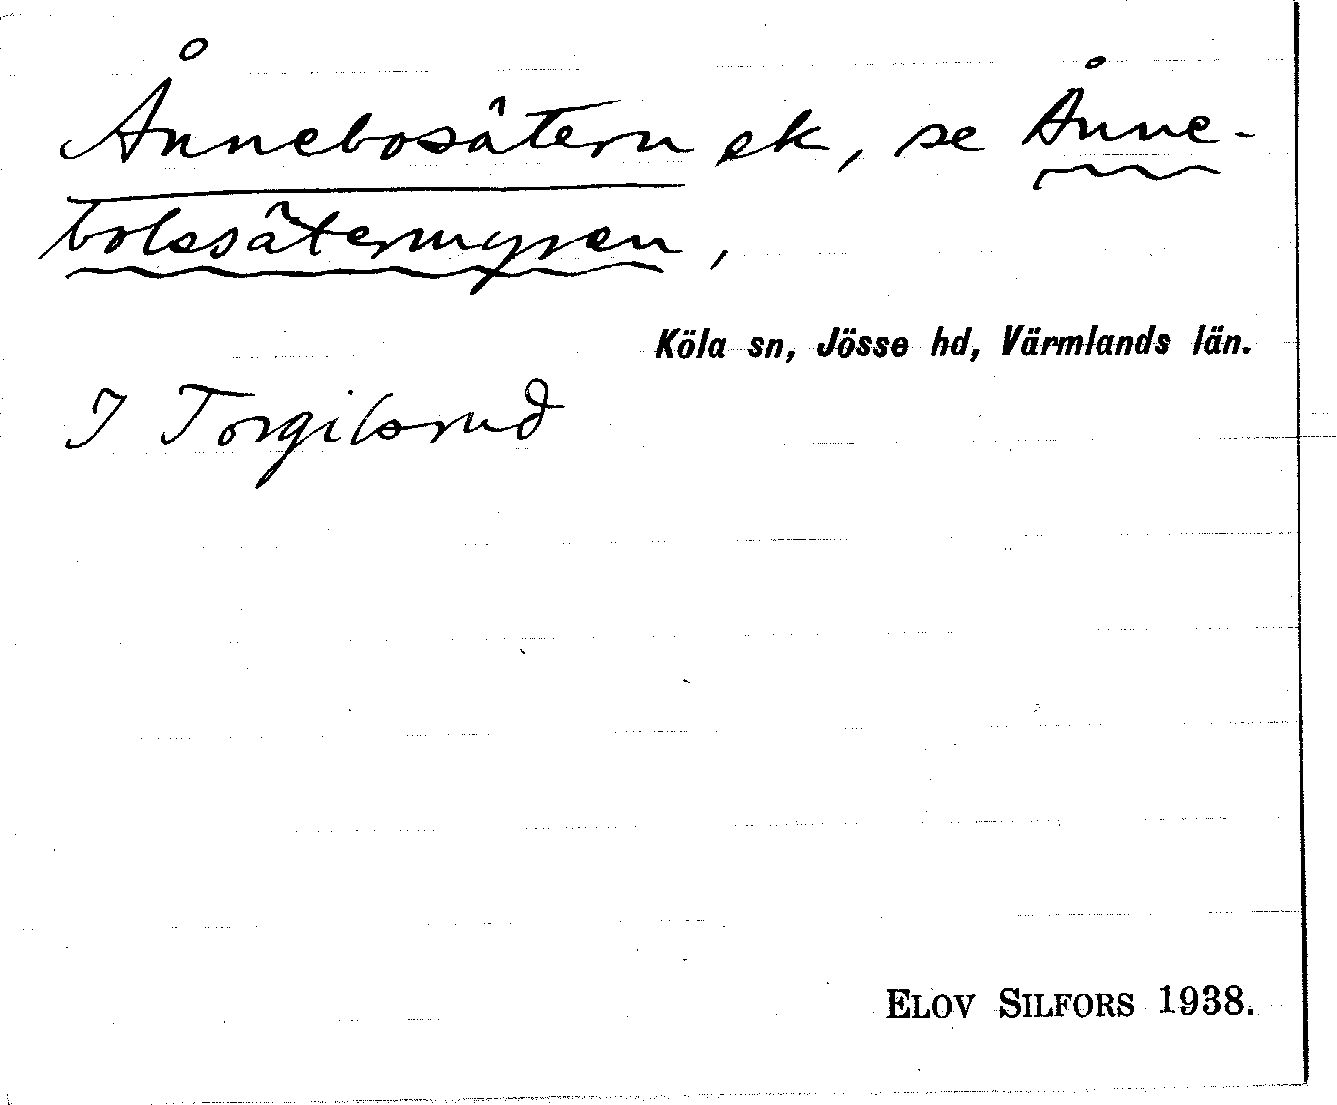 Ånnebosätern ek, se Ånne-
bolssätermyren,
Köla sn, Jösse hd, Värmlands län.
I Torgilsrud
ELOV SILFORS 1938.